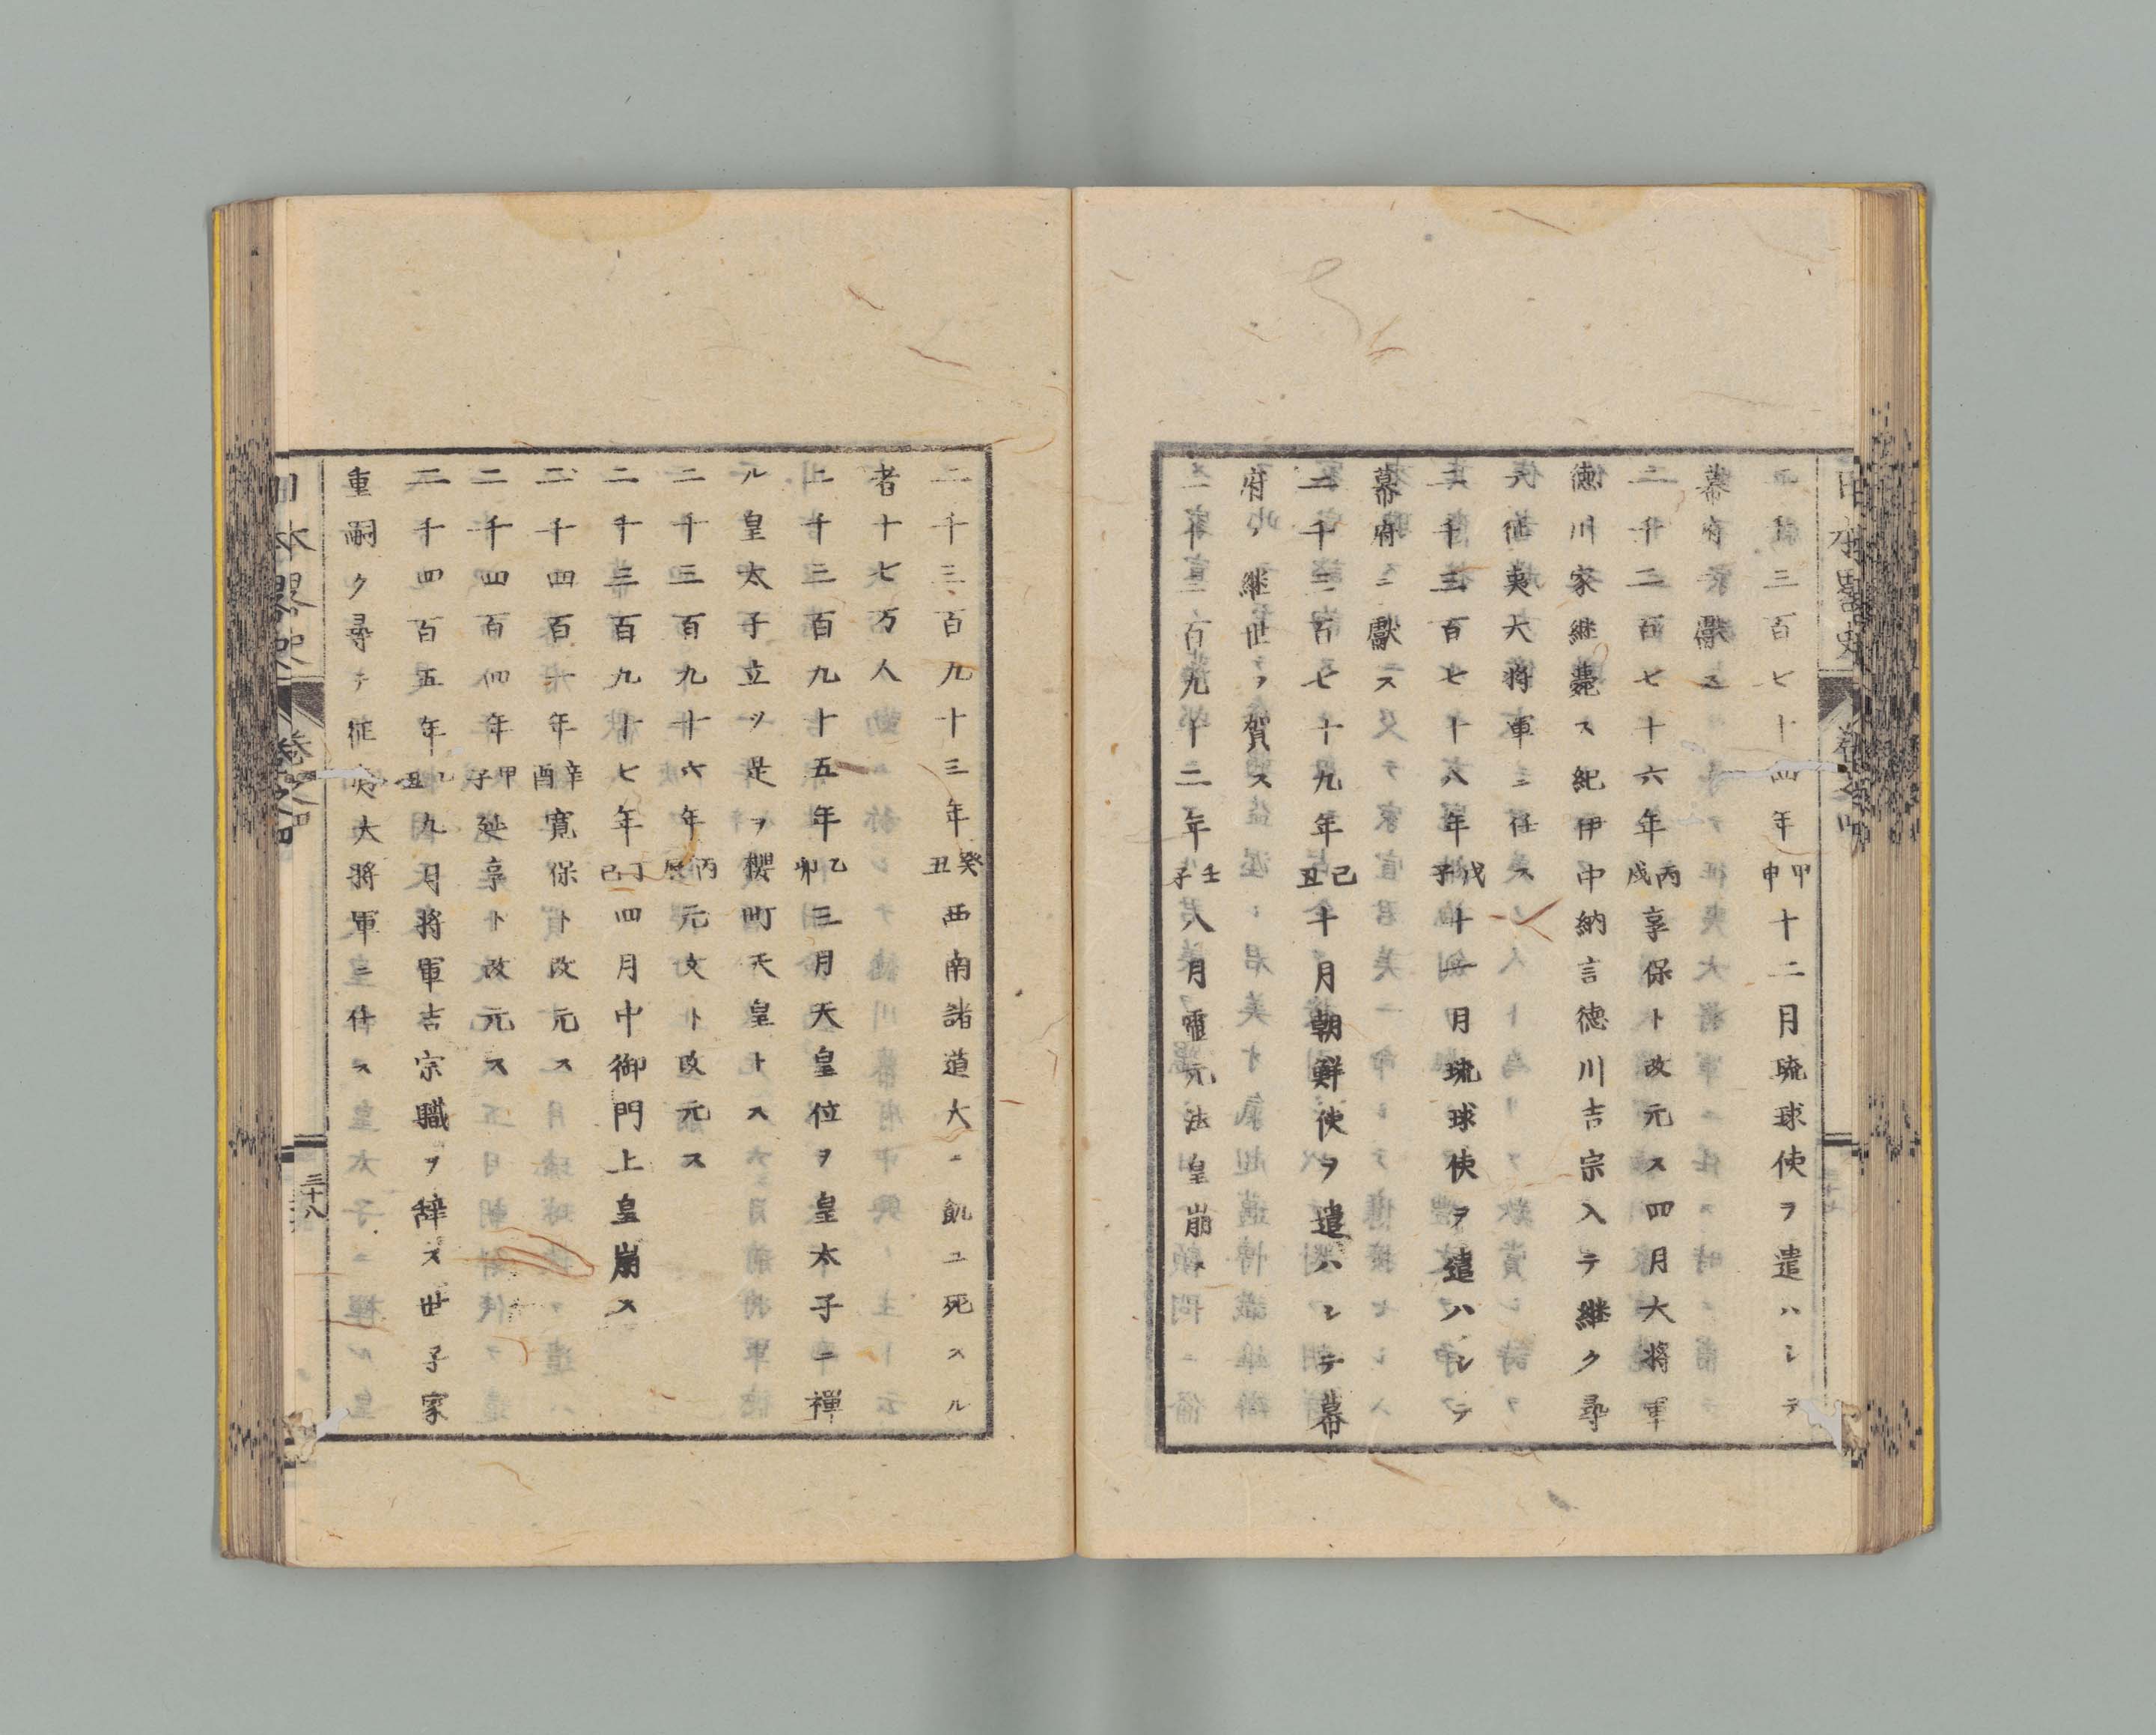 二千三百七十四年甲申十二月琉球使ヲ遣ハシテ
幕府ニ獻ス
二千三百七十六年丙戌享保ト改元ス四月大將軍
徳川家継薨ス紀伊中納言徳川吉宗入テ継ク尋
テ征夷大將軍ニ任ス
二千三百七十八年戊子十一月琉球使ヲ遣ハシテ
幕府ニ獻ス
二千三百七十九年己丑十月朝鮮使ヲ遣ハシテ幕
府ノ継世ヲ賀ス
二千三百九十二年壬子八月靈元法皇崩ス
二千三百九十三年癸丑西南諸道大ニ飢ユ死スル
者十七万人
二千三百九十五年乙卯三月天皇位ヲ皇太子ニ禪
ル皇太子立ツ是ヲ櫻町天皇トス
二千三百九十六年丙辰元文ト改元ス
二千三百九十七年丁巳四月中御門上皇崩ス
二千四百一年辛酉寛保ト改元ス
二千四百四年甲子延享ト改元ス
二千四百五年乙丑九月將軍吉宗職ヲ辭ス世子家
重嗣ク尋テ征夷大將軍ニ任ス
日本畧史 卷之四
三十八